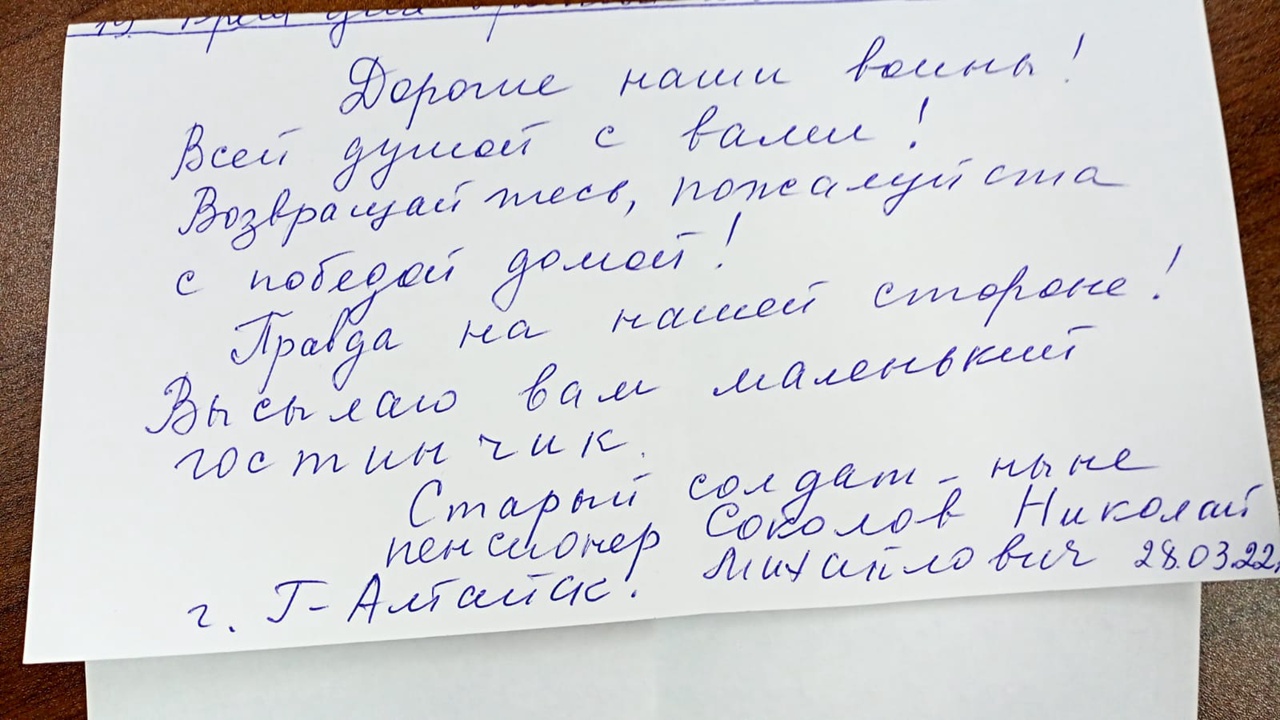 Дорогие наши воины!
Всей душой с вами!
Возвращайтесь, пожалуйста
с победой домой!
Правда на нашей стороне!
Высылаю вам маленький
гостинчик.
Старый солдат - ныне
пенсионер Соколов Николай
Михайлович 28.03.22г
г. Г-Алтайск.